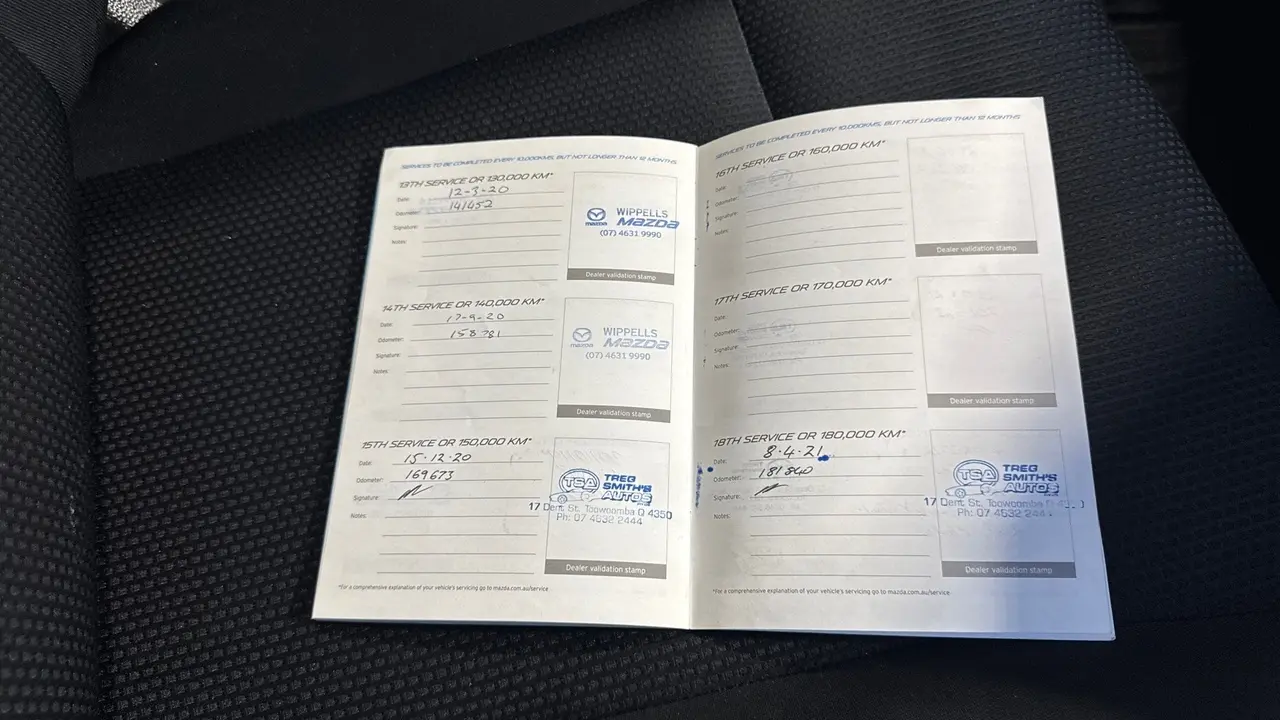 SERVICES TO BE COMPLETED EVERY 10,000KMS, BUT NOT LONGER THAN 12 MONTHS
13TH SERVICE OR 130,000 KM*
Date: 12-3-20
Odometer: 141452
Signature:
Notes:
mazda
WIPPELLS
mazda
(07) 4631 9990
Dealer validation stamp
14TH SERVICE OR 140,000 KM*
Date: 17-9-20
Odometer: 158781
Signature:
Notes:
mazda
WIPPELLS
mazda
(07) 4631 9990
Dealer validation stamp
15TH SERVICE OR 150,000 KM*
Date: 15.12.20
Odometer: 169673
Signature:
Notes:
TSA
TREG
SMITH'S
AUTOS
17 Dent St. Toowoomba Q 4350
Ph: 07 4632 2444
Dealer validation stamp
*For a comprehensive explanation of your vehicle's servicing go to mazda.com.au/service
SERVICES TO BE COMPLETED EVERY 10,000KMS, BUT NOT LONGER THAN 12 MONTHS
16TH SERVICE OR 160,000 KM*
Date:
Odometer:
Signature:
Notes:
Dealer validation stamp
17TH SERVICE OR 170,000 KM*
Date:
Odometer:
Signature:
Notes:
Dealer validation stamp
18TH SERVICE OR 180,000 KM*
Date: 8.4.21
Odometer: 181840
Signature:
Notes:
TSA
TREG
SMITH'S
AUTOS
17 Dent St. Toowoomba
Ph: 07 4632 244
Dealer validation stamp
*For a comprehensive explanation of your vehicle's servicing go to mazda.com.au/service